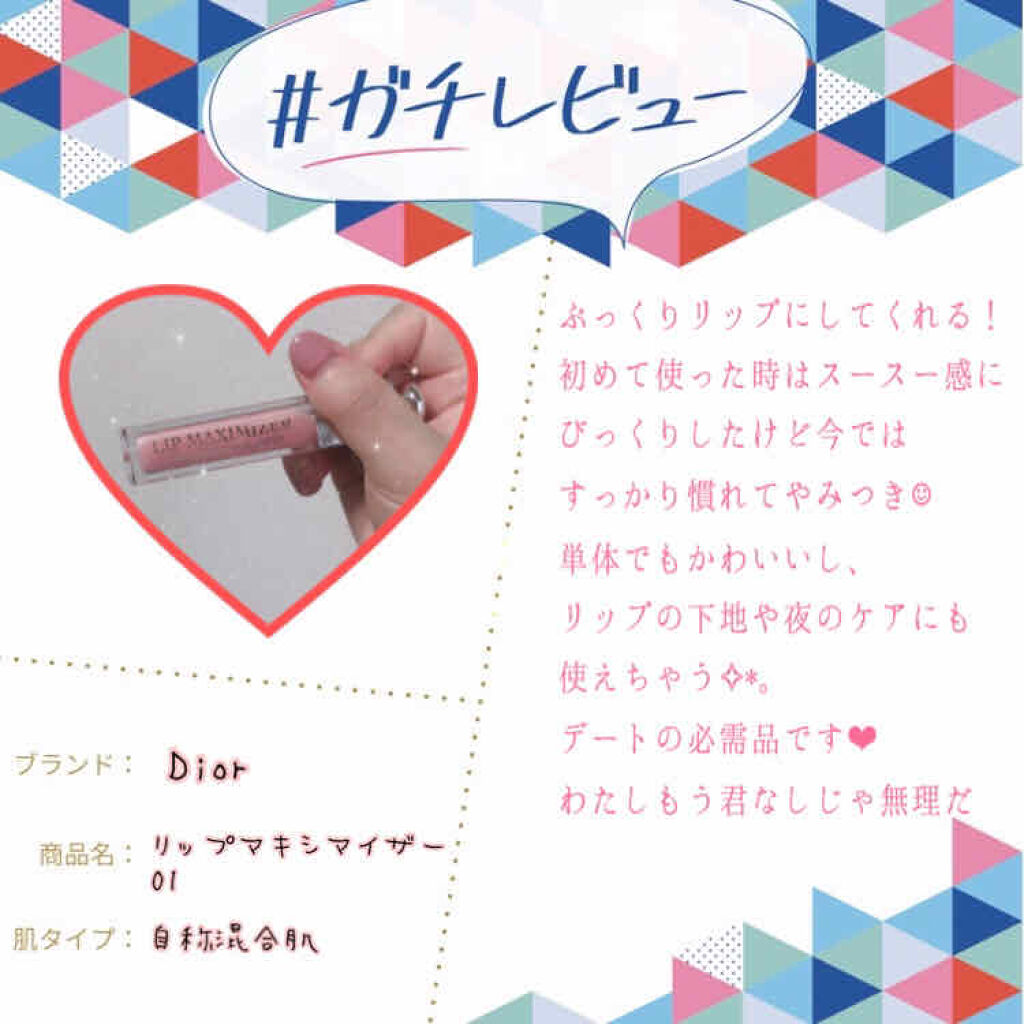 #ガチレビュー
LIP MAXIMIZER
ぷっくりリップにしてくれる！
初めて使った時はスースー感に
びっくりしたけど今では
すっかり慣れてやみつき☺
単体でもかわいいし、
リップの下地や夜のケアにも
使えちゃう✧*。
デートの必需品です❤
わたしもう君なしじゃ無理だ
ブランド： Dior
商品名： リップマキシマイザー
01
肌タイプ： 自称混合肌